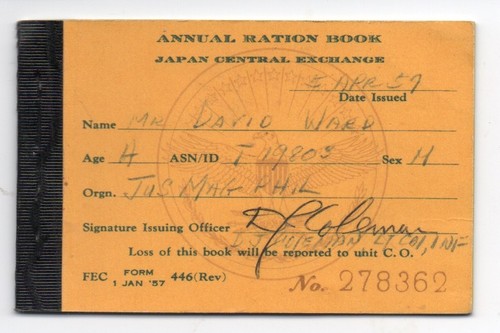 ANNUAL RATION BOOK
JAPAN CENTRAL EXCHANGE
5 APR 57
Date Issued
Name MR DAVID WARD
Age A ASN/ID T 19803 Sex M
Orgn. JUSMAG PHIL
Signature Issuing Officer D J Coleman
D J COLEMAN LT COL, INF
Loss of this book will be reported to unit C.O.
FEC FORM 1 JAN '57 446(Rev) No. 278362